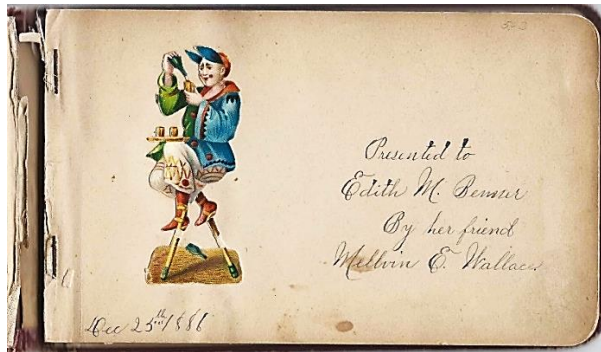 5-3
Presented to
Edith M. Benner
By her friend
Mellvin E. Wallace
Dec 25th 1886